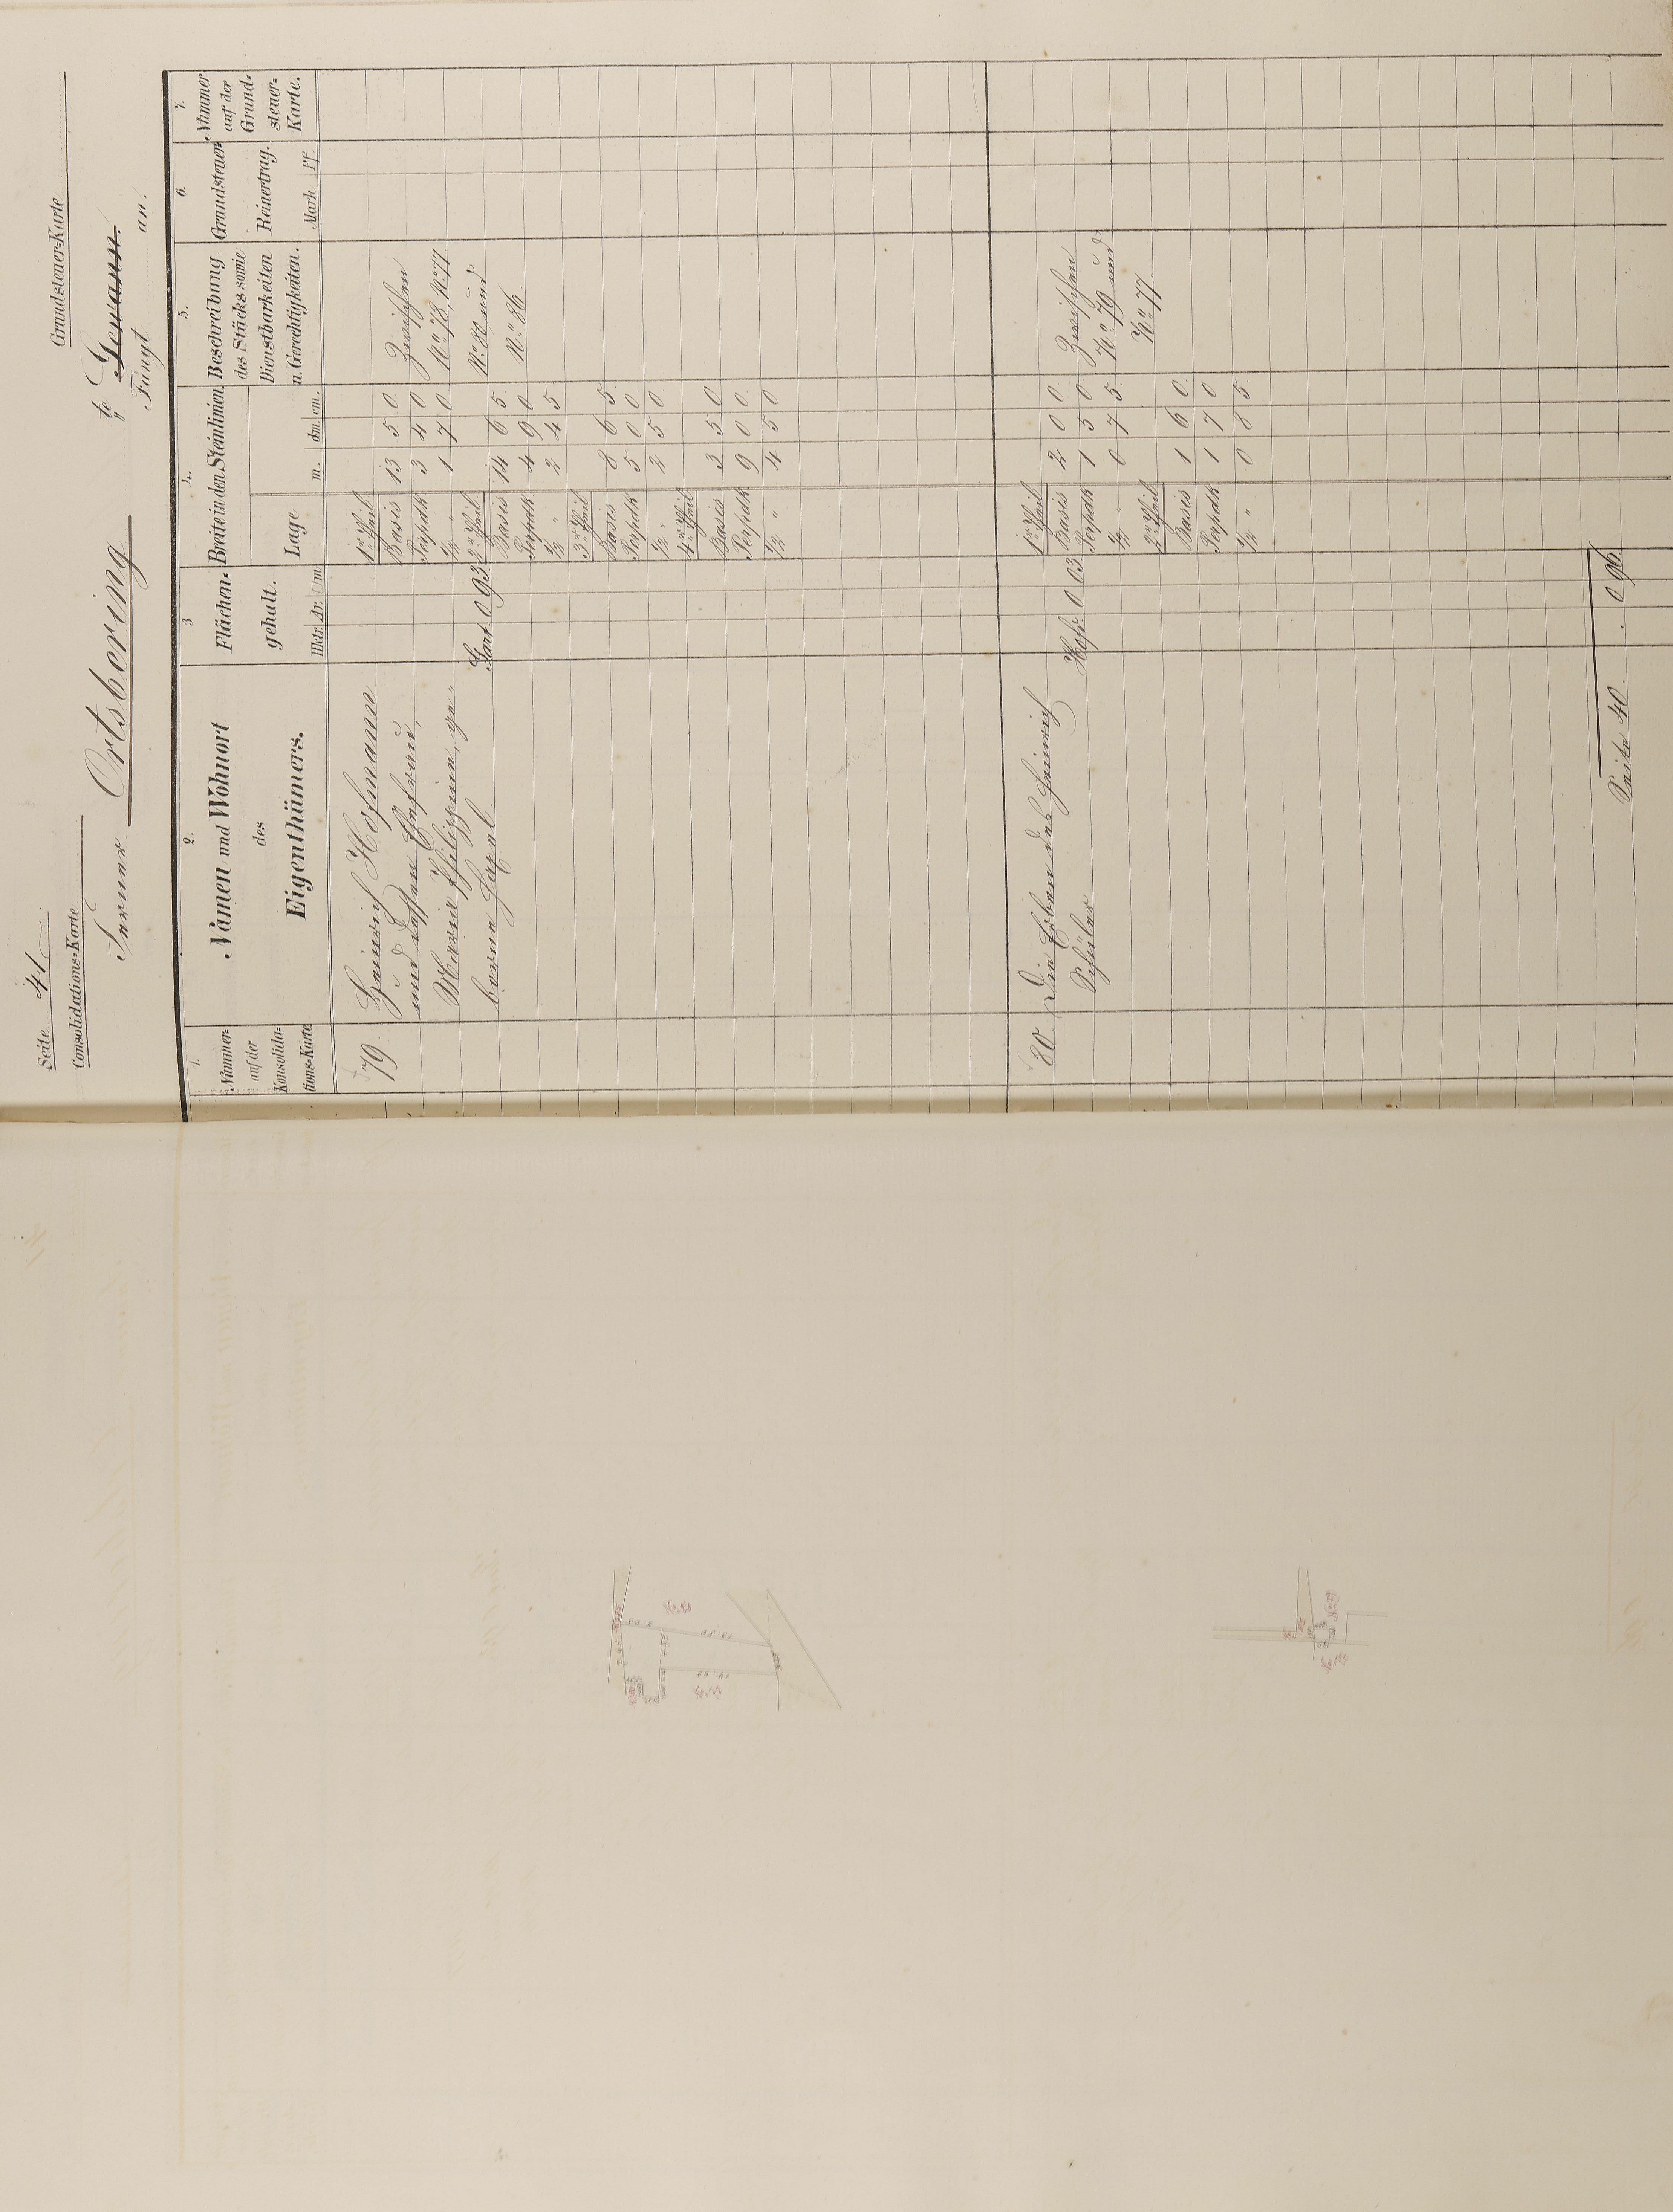 Seite 41.
Consolidations=Karte
Grundsteuer=Karte
Ferner Ortsbering
te Gewann.
Fängt an.
1. 2. 3 4. 5. 6. 7.
Nummer auf der Konsolidations=Karte
Namen und Wohnort des Eigenthümers.
Flächen=gehalt.
Hktr. Ar. □m
Breite in den Steinlinien
Lage m. dm. cm.
Beschreibung des Stücks sowie Dienstbarkeiten u. Gerechtigkeiten.
Grundsteuer Reinertrag.
Mark Pf.
Nummer auf der Grund=steuer=Karte.
79 Heinrich Hofmann
und dessen Ehefrau,
Maria Philippine, ge=
borne
0 93
1r Theil
Basis 13 5 0
Perpdk 3 4 0
1/2 " 1 7 0
2r Theil
Basis 14 6 5
Perpdk 4 9 0
1/2 " 2 4 5
3r Theil
Basis 8 6 5
Perpdk 5 0 0
1/2 " 2 5 0
4r Theil
Basis 3 5 0
Perpdk 9 0 0
1/2 " 4 5 0
Zwischen
No 78, No 77
No 80 und
No 86.
80. Die Erben des Heinrich
Schüler
Hofr. 0 03
1r Theil
Basis 2 0 0
Perpdk 1 5 0
1/2 " 0 7 5
2r Theil
Basis 1 6 0
Perpdk 1 7 0
1/2 " 0 8 5
Zwischen
No 79 und
No 77.
Seite 40. . 0 96